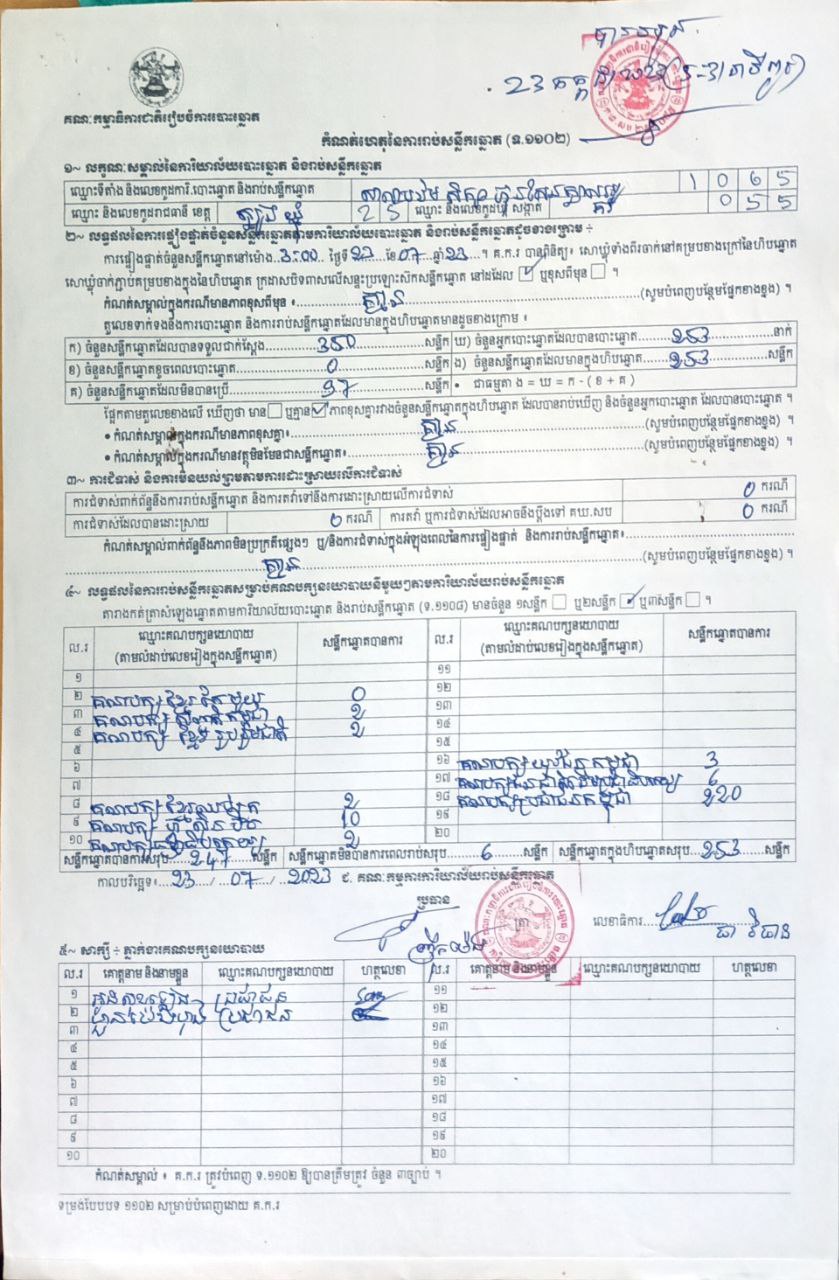 គណៈកម្មាធិការជាតិរៀបចំការបោះឆ្នោត
កំណត់ហេតុនៃការរាប់សន្លឹកឆ្នោត (ទ.១១០២)
១~ លក្ខណៈសម្គាល់នៃការិយាល័យបោះឆ្នោត និងរាប់សន្លឹកឆ្នោត
ឈ្មោះទីតាំង និងលេខកូដការិ.បោះឆ្នោត និងរាប់សន្លឹកឆ្នោត 1 0 6 5
ឈ្មោះ និងលេខកូដរាជធានី ខេត្ត ត្បូងឃ្មុំ 2 5 ឈ្មោះ និងលេខកូដឃុំ សង្កាត់ 0 5 5
២~ លទ្ធផលនៃការផ្ទៀងផ្ទាត់ចំនួនសន្លឹកឆ្នោតតាមការិយាល័យបោះឆ្នោត និងរាប់សន្លឹកឆ្នោតដូចខាងក្រោម ÷
ការផ្ទៀងផ្ទាត់ចំនួនសន្លឹកឆ្នោតនៅម៉ោង..3:00..ថ្ងៃទី23 ខែ07 ឆ្នាំ23 ។ គ.ក.រ បានពិនិត្យ៖ សោឃ្លុំទាំងពីរចាក់នៅគម្របខាងក្រៅនៃហិបឆ្នោត
សោឃ្លុំចាក់ភ្ជាប់គម្របខាងក្នុងនៃហិបឆ្នោត ក្រដាសបិទពាសលើសន្ទះប្រឡោះសិកសន្លឹកឆ្នោត នៅដដែល ☑ ឬខុសពីមុន ☐ ។
កំណត់សម្គាល់ក្នុងករណីមានភាពខុសពីមុន ៖ គ្មាន (សូមបំពេញបន្ថែមផ្នែកខាងខ្នង) ។
តួលេខទាក់ទងនឹងការបោះឆ្នោត និងការរាប់សន្លឹកឆ្នោតដែលមានក្នុងហិបឆ្នោតមានដូចខាងក្រោម ៖
ក) ចំនួនសន្លឹកឆ្នោតដែលបានទទួលជាក់ស្ដែង 350 សន្លឹក ឃ) ចំនួនអ្នកបោះឆ្នោតដែលបានបោះឆ្នោត 253 នាក់
ខ) ចំនួនសន្លឹកឆ្នោតខូចពេលបោះឆ្នោត 0 សន្លឹក ង) ចំនួនសន្លឹកឆ្នោតដែលមានក្នុងហិបឆ្នោត 253 សន្លឹក
គ) ចំនួនសន្លឹកឆ្នោតដែលមិនបានប្រើ 97 សន្លឹក • ជាធម្មតា ង = ឃ = ក - ( ខ + គ )
ផ្អែកតាមតួលេខខាងលើ ឃើញថា មាន ☐ ឬគ្មាន ☑ ភាពខុសគ្នារវាងចំនួនសន្លឹកឆ្នោតក្នុងហិបឆ្នោត ដែលបានរាប់ឃើញ និងចំនួនអ្នកបោះឆ្នោត ដែលបានបោះឆ្នោត ។
• កំណត់សម្គាល់ក្នុងករណីមានភាពខុសគ្នា៖ គ្មាន (សូមបំពេញបន្ថែមផ្នែកខាងខ្នង) ។
• កំណត់សម្គាល់ក្នុងករណីមានវត្ថុមិនមែនជាសន្លឹកឆ្នោត៖ គ្មាន (សូមបំពេញបន្ថែមផ្នែកខាងខ្នង) ។
៣~ ការជំទាស់ និងការមិនយល់ព្រមតាមការដោះស្រាយលើការជំទាស់
ការជំទាស់ពាក់ព័ន្ធនឹងការរាប់សន្លឹកឆ្នោត និងការតវ៉ាទៅនឹងការដោះស្រាយលើការជំទាស់ 0 ករណី
ការជំទាស់ដែលបានដោះស្រាយ 0 ករណី ការតវ៉ា ឬការជំទាស់ដែលអាចនឹងប្ដឹងទៅ គឃ.សប 0 ករណី
កំណត់សម្គាល់ពាក់ព័ន្ធនឹងភាពមិនប្រក្រតីផ្សេងៗ ឬ/និងការជំទាស់ក្នុងអំឡុងពេលនៃការផ្ទៀងផ្ទាត់ និងការរាប់សន្លឹកឆ្នោត៖
គ្មាន (សូមបំពេញបន្ថែមផ្នែកខាងខ្នង) ។
៤~ លទ្ធផលនៃការរាប់សន្លឹកឆ្នោតសម្រាប់គណបក្សនយោបាយនីមួយៗតាមការិយាល័យរាប់សន្លឹកឆ្នោត
តារាងកត់ត្រាសំឡេងឆ្នោតតាមការិយាល័យបោះឆ្នោត និងរាប់សន្លឹកឆ្នោត (ទ.១១០៨) មានចំនួន ១សន្លឹក ☐ ឬ២សន្លឹក ☑ ឬ៣សន្លឹក ☐ ។
ល.រ ឈ្មោះគណបក្សនយោបាយ (តាមលំដាប់លេខរៀងក្នុងសន្លឹកឆ្នោត) សន្លឹកឆ្នោតបានការ ល.រ ឈ្មោះគណបក្សនយោបាយ (តាមលំដាប់លេខរៀងក្នុងសន្លឹកឆ្នោត) សន្លឹកឆ្នោតបានការ
១ ១១
២ គណបក្ស ខ្មែរតែមួយ 0 ១២
៣ គណបក្ស 2 ១៣
៤ គណបក្ស ខ្មែររួបរួមជាតិ 2 ១៤
៥ ១៥
៦ ១៦ គណបក្ស យុវជនកម្ពុជា 3
៧ ១៧ 6
៨ គណបក្ស 2 ១៨ គណបក្សប្រជាជនកម្ពុជា 220
៩ គណបក្ស ហ៊្វុនស៊ិនប៉ិច 10 ១៩
១០ 2 ២០
សន្លឹកឆ្នោតបានការសរុប 247 សន្លឹក សន្លឹកឆ្នោតមិនបានការពេលរាប់សរុប 6 សន្លឹក សន្លឹកឆ្នោតក្នុងហិបឆ្នោតសរុប 253 សន្លឹក
កាលបរិច្ឆេទ៖ 23 / 07 / 2023 ជ. គណៈកម្មការការិយាល័យរាប់សន្លឹកឆ្នោត
ប្រធាន ត្រា លេខាធិការ
៥~ សាក្សី ÷ ភ្នាក់ងារគណបក្សនយោបាយ
ល.រ គោត្តនាម និងនាមខ្លួន ឈ្មោះគណបក្សនយោបាយ ហត្ថលេខា ល.រ គោត្តនាម និងនាមខ្លួន ឈ្មោះគណបក្សនយោបាយ ហត្ថលេខា
១ ប្រជាជន ១១
២ ប្រជាជន ១២
៣ ១៣
៤ ១៤
៥ ១៥
៦ ១៦
៧ ១៧
៨ ១៨
៩ ១៩
១០ ២០
កំណត់សម្គាល់ ៖ គ.ក.រ ត្រូវបំពេញ ទ.១១០២ ឱ្យបានត្រឹមត្រូវ ចំនួន ៣ច្បាប់ ។
ទម្រង់បែបបទ ១១០២ សម្រាប់បំពេញដោយ គ.ក.រ